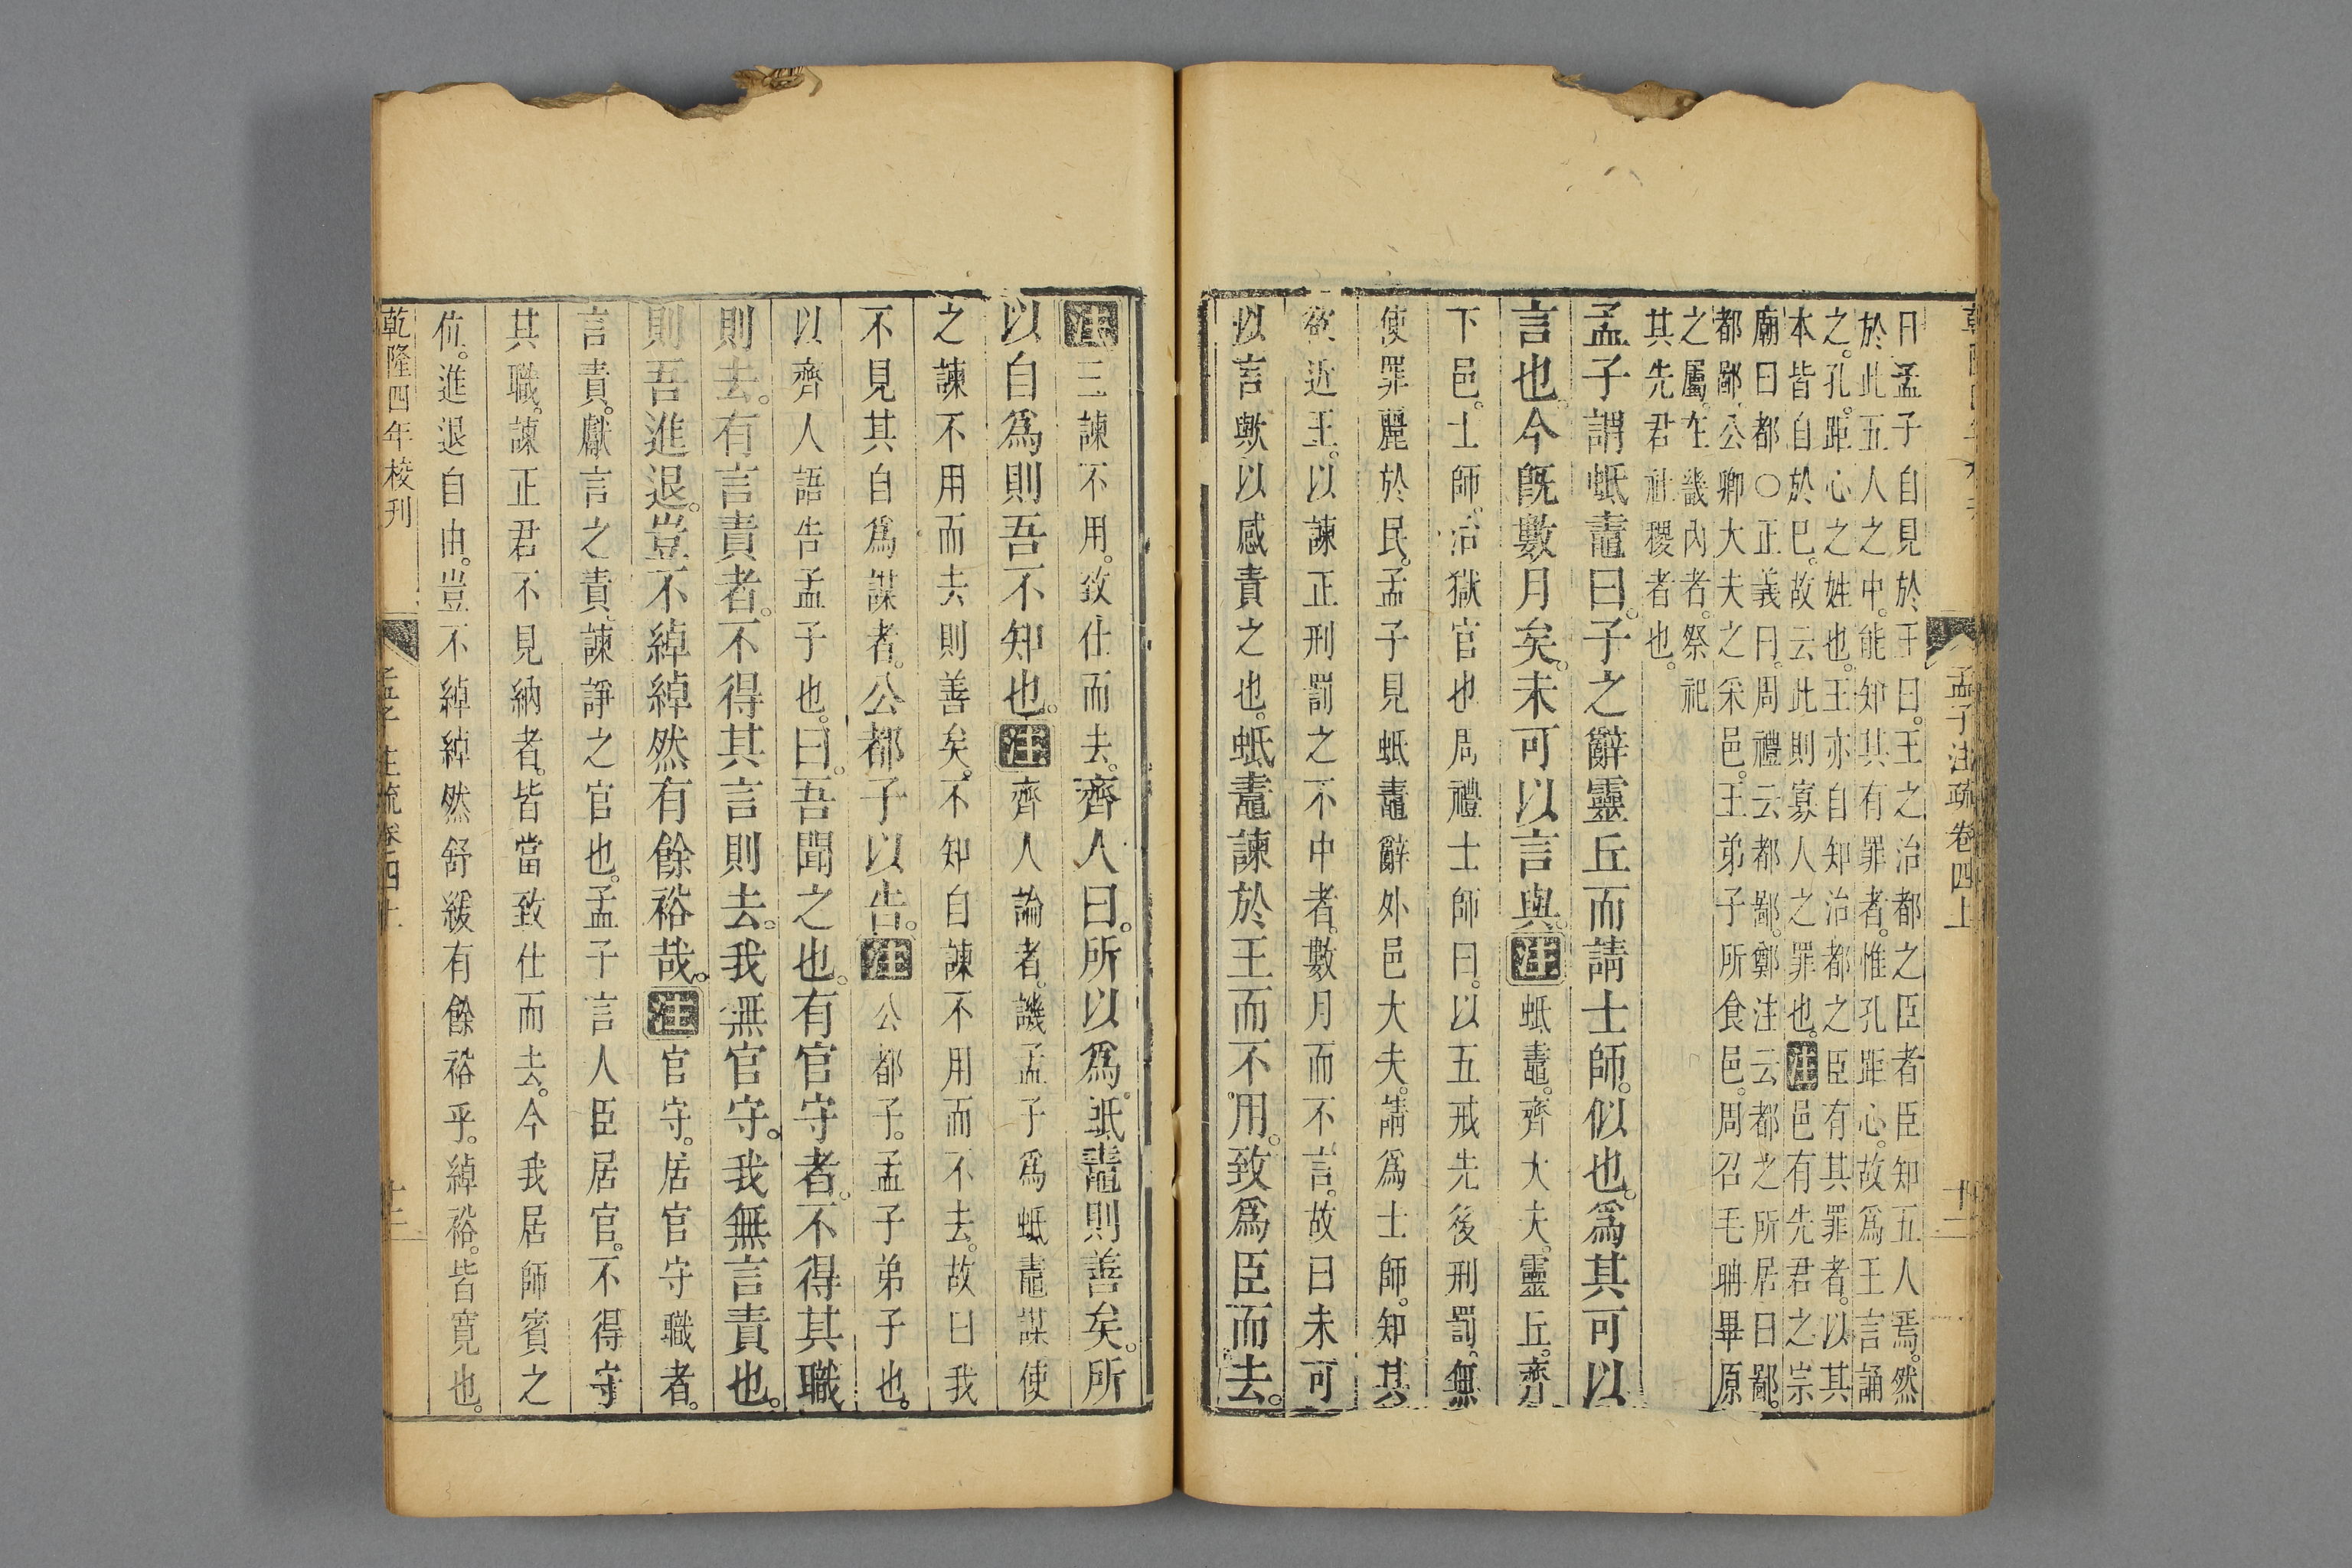 乾隆四年校刊
孟子注疏卷四上
十二
曰孟子自見於王曰。王之治都之臣者臣知五人焉。然
於此五人之中。能知其有罪者。惟孔距心。故爲王言誦
之。孔距心之姓也。王亦自知治都之臣有其罪者。以其
本皆自於已。故云此則寡人之罪也。注邑有先君之宗
廟曰都〇正義曰。周禮云都鄙。鄭注云都之所居曰鄙。
都鄙公卿大夫之采邑。王弟子所食邑。周召毛聃畢原
之屬。在畿內者。祭祀
其先君社稷者也。
孟子謂蚔鼃曰。子之辭靈丘而請士師。似也。爲其可以
言也。今旣數月矣。未可以言與。注蚔鼃。齊大夫。靈丘。齊
下邑。士師。治獄官也周禮士師曰。以五戒先後刑罰。無
使罪麗於民。孟子見蚔鼃辭外邑大夫。請爲士師。知其
欲近王。以諫正刑罰之不中者。數月而不言。故曰未可
以言歟以感責之也。蚔鼃諫於王而不用。致爲臣而去。
注三諫不用。致仕而去。齊人曰。所以爲蚔鼃則善矣。所
以自爲則吾不知也。注齊人論者。譏孟子爲蚔鼃謀使
之諫不用而去則善矣。不知自諫不用而不去。故曰我
不見其自爲謀者。公都子以告。注公都子。孟子弟子也。
以齊人語告孟子也。曰。吾聞之也。有官守者。不得其職
則去。有言責者。不得其言則去。我無官守。我無言責也。
則吾進退。豈不綽綽然有餘裕哉。注官守。居官守職者。
言責。獻言之責。諫諍之官也。孟子言人臣居官。不得守
其職。諫正君不見納者。皆當致仕而去。今我居師賓之
位。進退自由。豈不綽綽然舒緩有餘裕乎。綽裕。皆寬也。
乾隆四年校刊
孟子注疏卷四上
十三